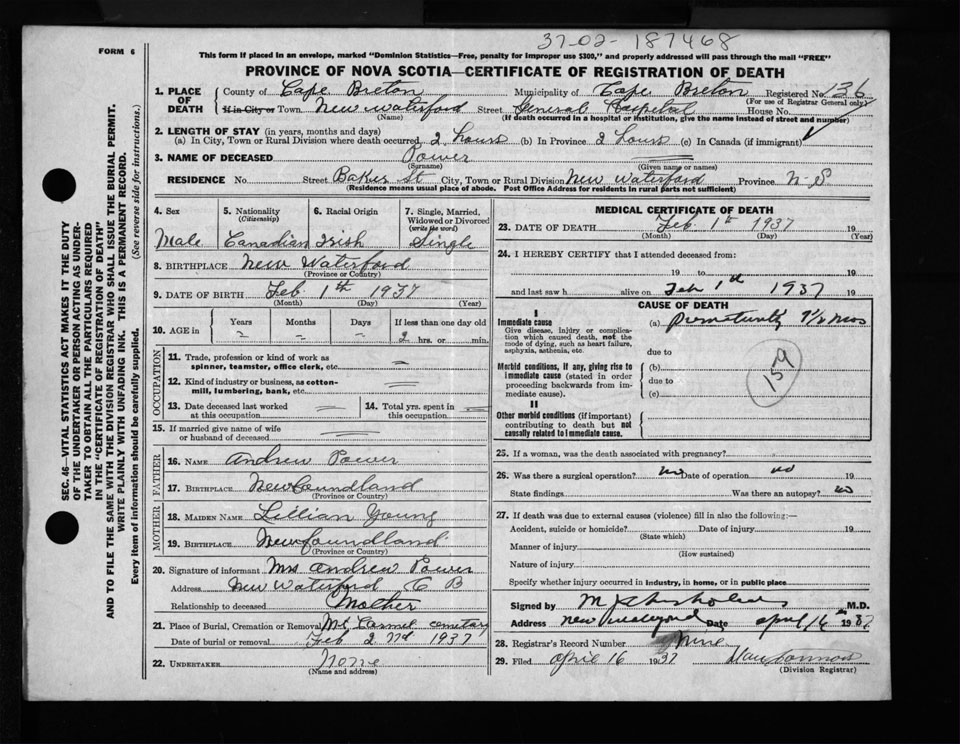 37-02-187468
FORM 6
This form if placed in an envelope, marked "Dominion Statistics—Free, penalty for improper use $300," and properly addressed will pass through the mail "FREE"
PROVINCE OF NOVA SCOTIA—CERTIFICATE OF REGISTRATION OF DEATH
SEC. 46—VITAL STATISTICS ACT MAKES IT THE DUTY
OF THE UNDERTAKER OR PERSON ACTING AS UNDER-
TAKER TO OBTAIN ALL THE PARTICULARS REQUIRED
IN THE "CERTIFICATE OF REGISTRATION OF DEATH"
AND TO FILE THE SAME WITH THE DIVISION REGISTRAR WHO SHALL ISSUE THE BURIAL PERMIT.
WRITE PLAINLY WITH UNFADING INK. THIS IS A PERMANENT RECORD.
Every item of information should be carefully supplied. (See reverse side for instructions.)
1. PLACE OF DEATH County of Cape Breton Municipality of Cape Breton Registered No. 136
(For use of Registrar General only)
If in City or Town New Waterford Street General Hospital House No.
(Name) (If death occurred in a hospital or institution, give the name instead of street and number)
2. LENGTH OF STAY (in years, months and days)
(a) In City, Town or Rural Division where death occurred 2 hours (b) In Province 2 hours (c) In Canada (if immigrant)
3. NAME OF DECEASED Power
(Surname) (Given name or names)
RESIDENCE No. Street Baker St City, Town or Rural Division New Waterford Province N-S
(Residence means usual place of abode. Post Office Address for residents in rural parts not sufficient)
4. Sex 5. Nationality (Citizenship) 6. Racial Origin 7. Single, Married, Widowed or Divorced (write the word)
Male Canadian Irish Single
8. BIRTHPLACE New Waterford
(Province or Country)
9. DATE OF BIRTH Feb 1th 1937
(Month) (Day) (Year)
10. AGE in Years Months Days If less than one day old
2 hrs. or min.
OCCUPATION
11. Trade, profession or kind of work as
spinner, teamster, office clerk, etc.
12. Kind of industry or business, as cotton-
mill, lumbering, bank, etc.
13. Date deceased last worked
at this occupation
14. Total yrs. spent in
this occupation
15. If married give name of wife
or husband of deceased
FATHER
16. NAME Andrew Power
17. BIRTHPLACE Newfoundland
(Province or Country)
MOTHER
18. MAIDEN NAME Lillian Young
19. BIRTHPLACE Newfoundland
(Province or Country)
20. Signature of informant Mrs Andrew Power
Address New Waterford C B
Relationship to deceased Mother
21. Place of Burial, Cremation or Removal Mt Carmel cemetary
Date of burial or removal Feb 2nd 1937
22. UNDERTAKER None
(Name and address)
MEDICAL CERTIFICATE OF DEATH
23. DATE OF DEATH Feb. 1th 1937 19
(Month) (Day) (Year)
24. I HEREBY CERTIFY that I attended deceased from:
19 to 19
and last saw h alive on Feb 1 1937 19
CAUSE OF DEATH
I
Immediate cause (a) Prematurity 7 1/2 mos
Give disease, injury or complica-
tion which caused death, not the
mode of dying, such as heart failure,
asphyxia, asthenia, etc.
due to
Morbid conditions, if any, giving rise to
immediate cause (stated in order
proceeding backwards from im-
mediate cause).
(b)
due to
(c)
159
II
Other morbid conditions (if important)
contributing to death but not
causally related to immediate cause.
25. If a woman, was the death associated with pregnancy?
26. Was there a surgical operation? no Date of operation no 19
State findings Was there an autopsy? no
27. If death was due to external causes (violence) fill in also the following:—
Accident, suicide or homicide? Date of injury 19
(State which)
Manner of injury
(How sustained)
Nature of injury
Specify whether injury occurred in industry, in home, or in public place
Signed by M.D.
Address New Waterford Date April 16 1937
28. Registrar's Record Number Nine
29. Filed April 16 1937
(Division Registrar)